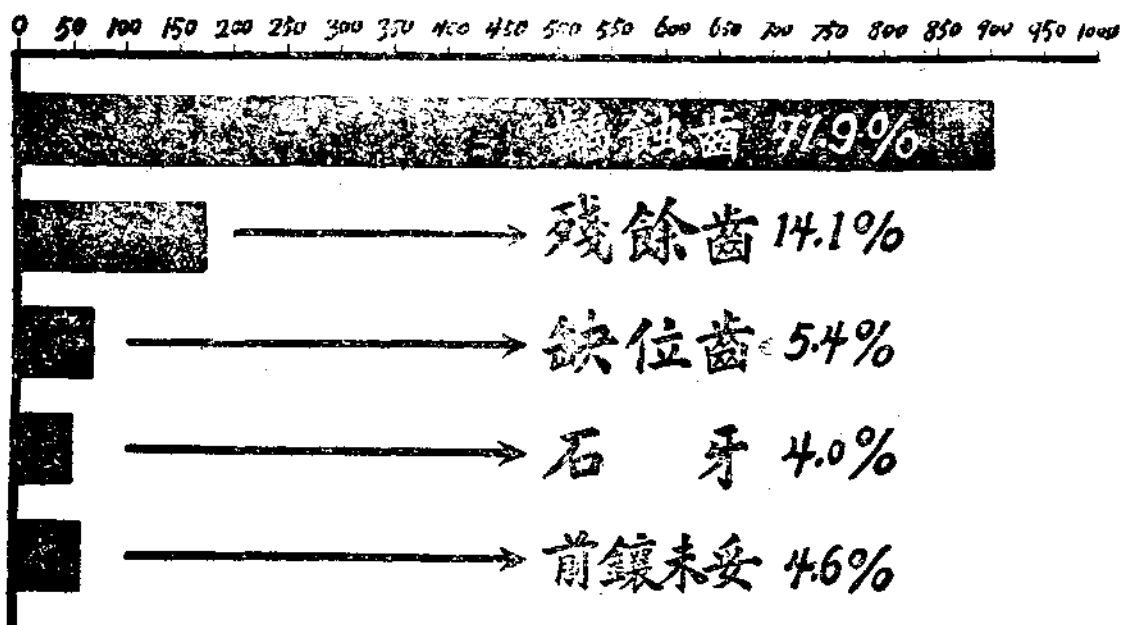 0 50 100 150 200 250 300 350 400 450 500 550 600 650 700 750 800 850 900 950 1000
齲蝕齒 71.9%
殘餘齒 14.1%
缺位齒 5.4%
石牙 4.0%
前鑲未妥 4.6%